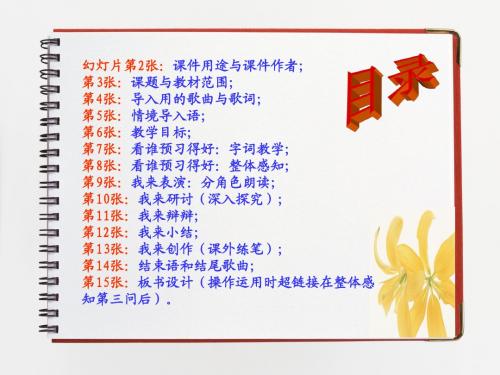 目录
幻灯片第2张：课件用途与课件作者；
第3张：课题与教材范围；
第4张：导入用的歌曲与歌词；
第5张：情境导入语；
第6张：教学目标；
第7张：看谁预习得好：字词教学；
第8张：看谁预习得好：整体感知；
第9张：我来表演：分角色朗读；
第10张：我来研讨（深入探究）；
第11张：我来辩辩；
第12张：我来小结；
第13张：我来创作（课外练笔）；
第14张：结束语和结尾歌曲；
第15张：板书设计（操作运用时超链接在整体感
知第三问后）。